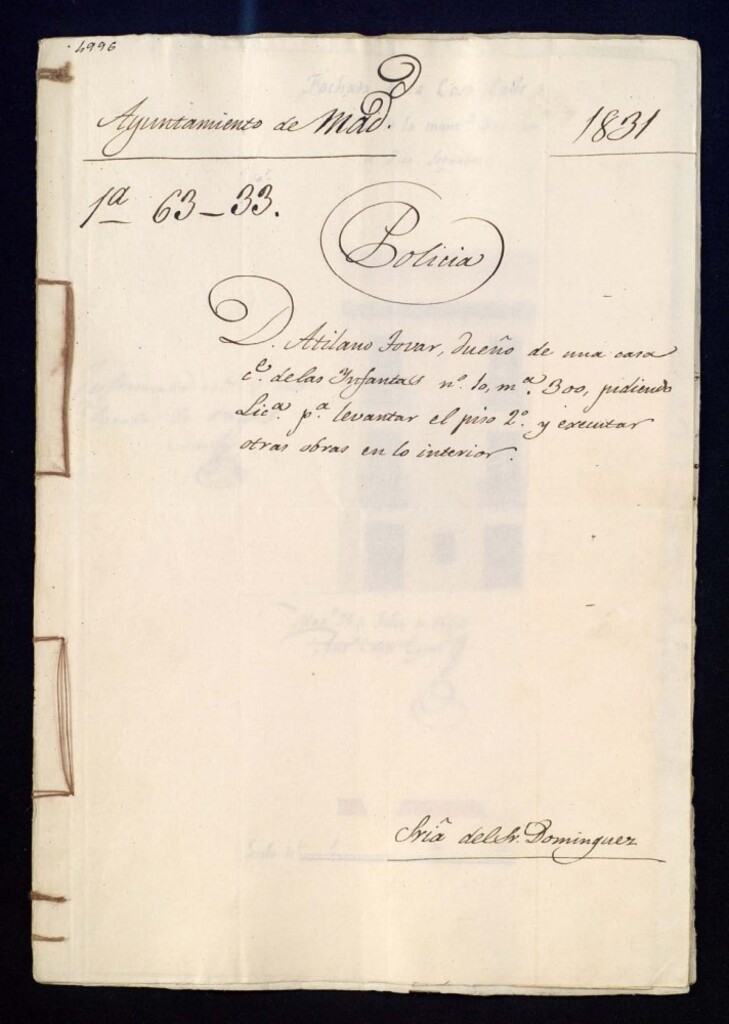 4996
Ayuntamiento de Mad.d
1831
1a 63-33.
Policia
D. Atilano Tovar, dueño de una casa
c.e de las Ynfantas n.o 10, m.a 300, pidiendo
Lic.a p.a levantar el piso 2.o y executar
otras obras en lo interior.
Sria del Sr. Dominguez